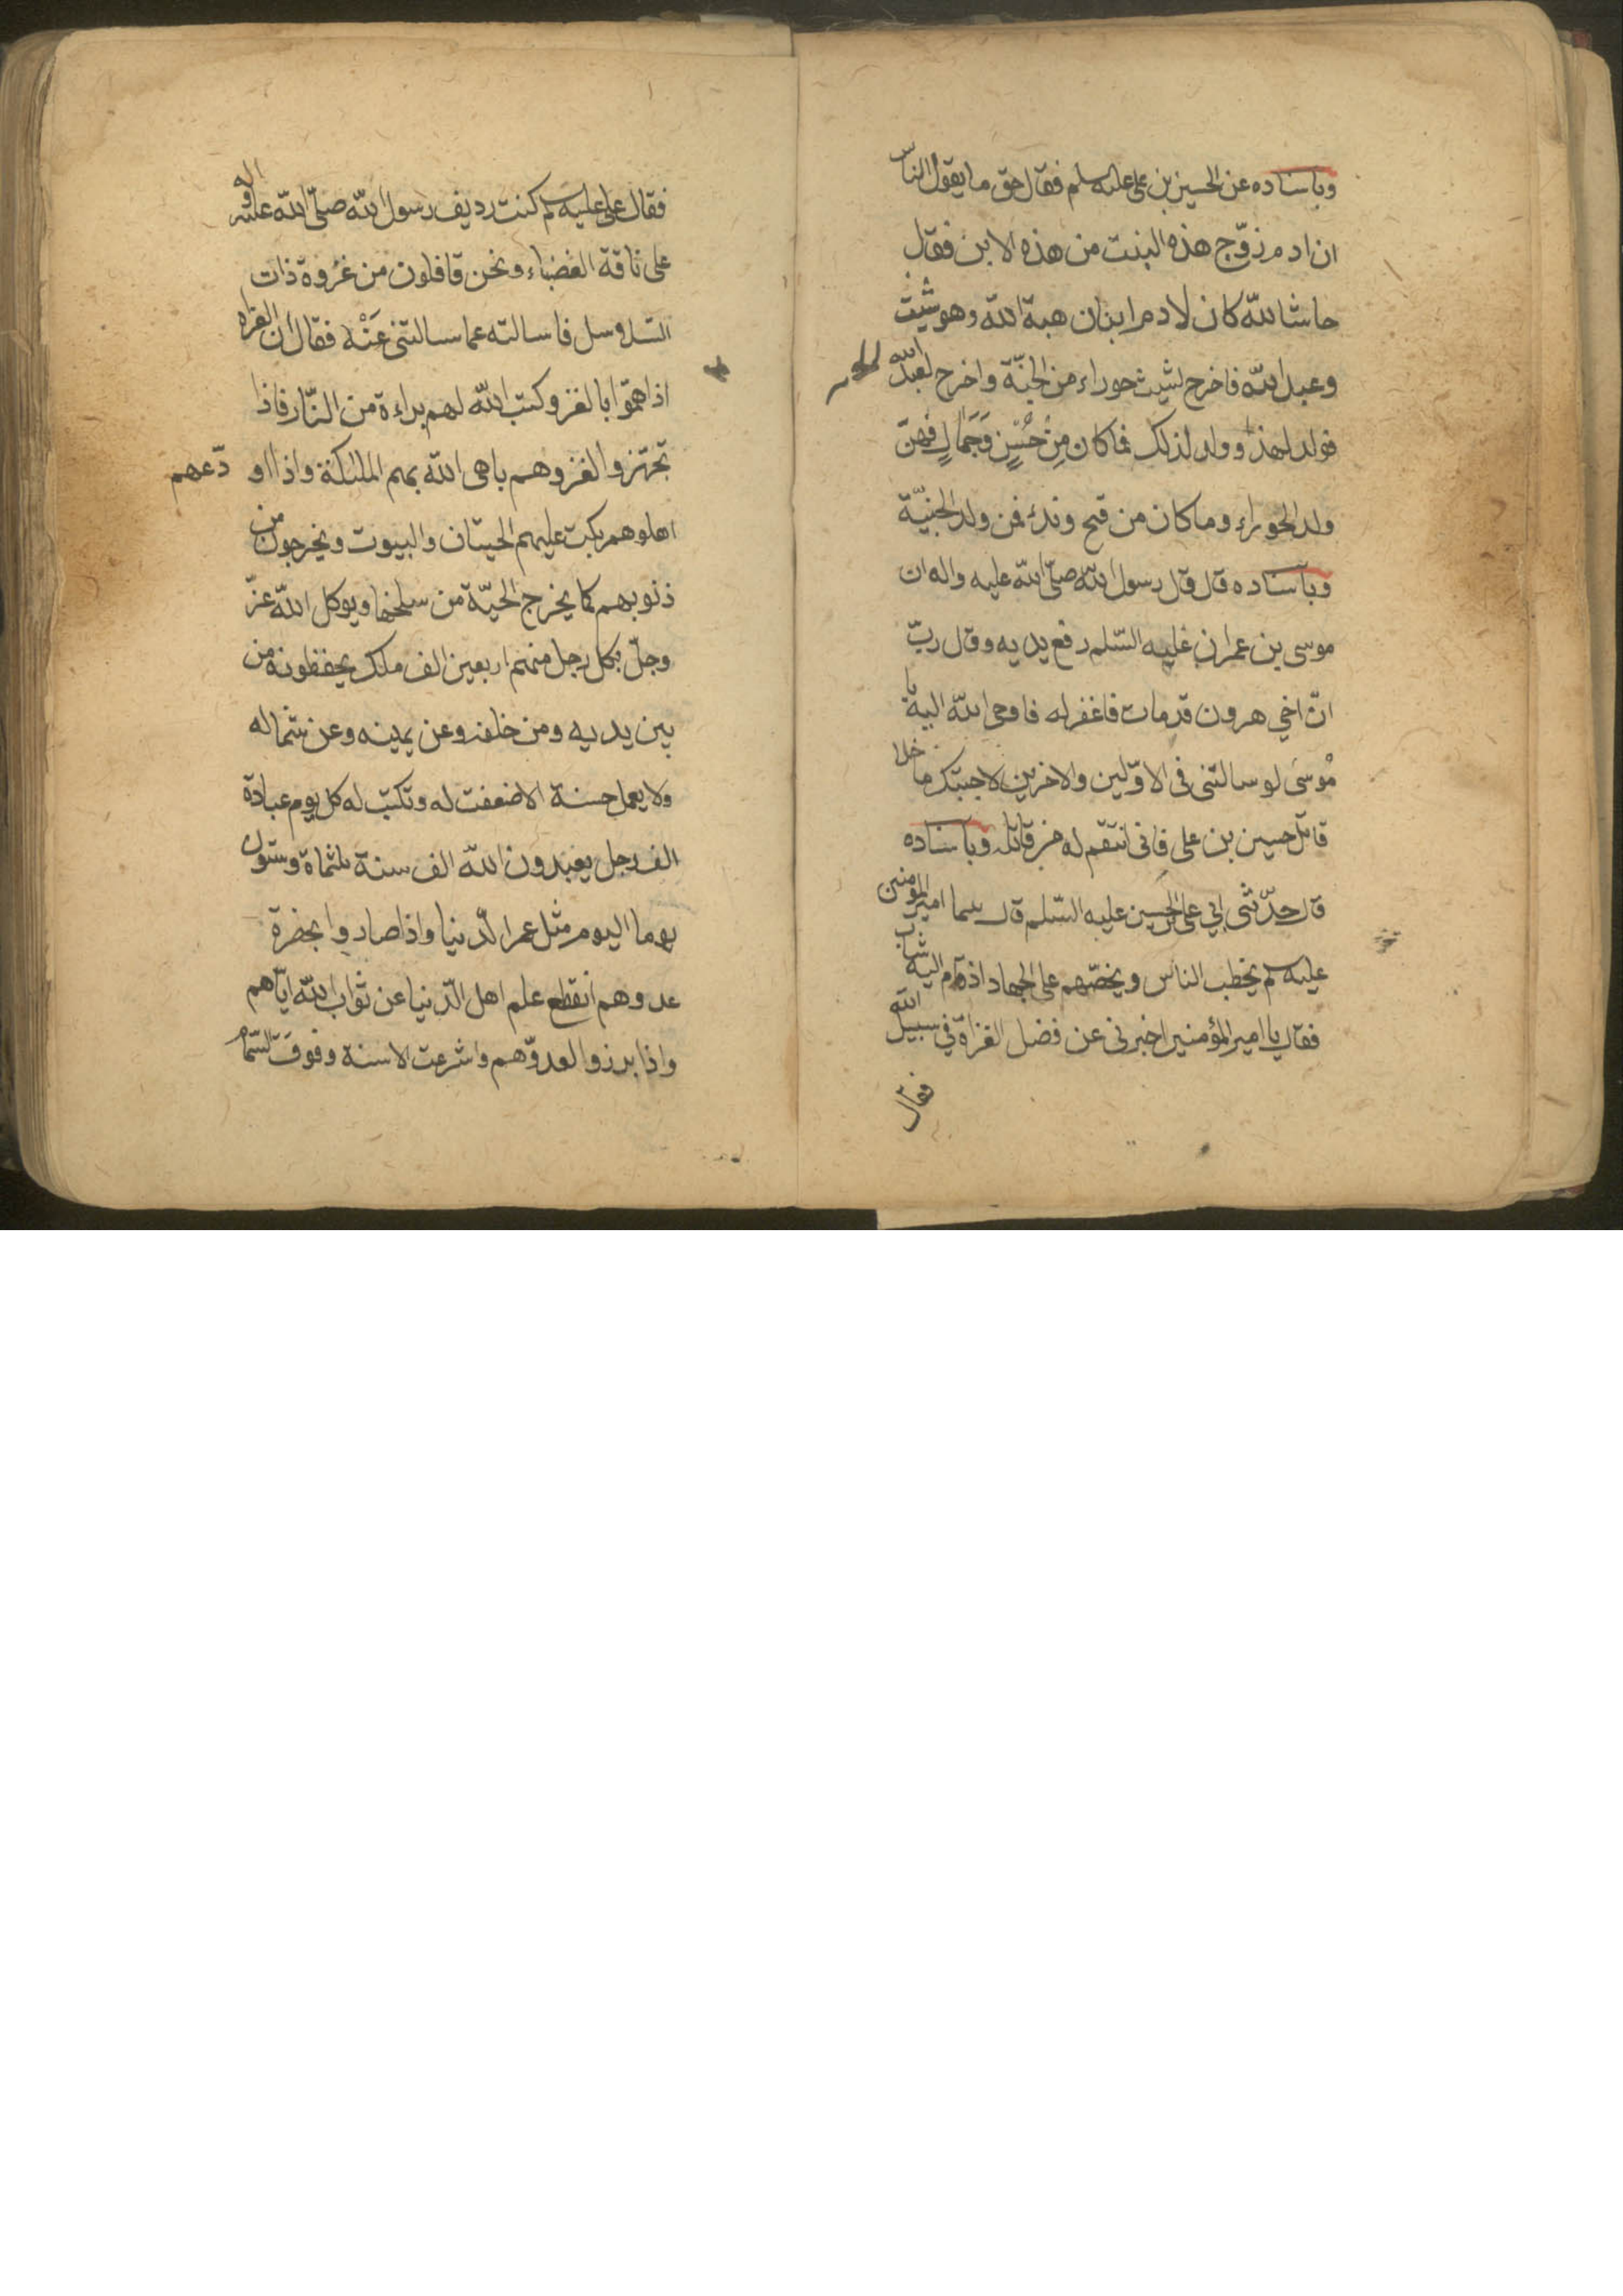 وباسناده عن الحسين بن على عليه سلم فقال حق ما يقول الناس
ان ادم زوّج هذه البنت من هذه الابن فقال
حاشا لله كان لادم ابنان هبة الله وهو شيث
وعبد الله فاخرج لشيث حوراء من الجنّة واخرج لعبد الله
فولد لهذا وولد لذلك فما كان مِنْ حُسْنٍ وَجَمَالٍ فهنّ
ولد الحوراء وما كان من قبح وبذء فمن ولد الجنيّة
وبآسناده قال قال رسول الله صلّى الله عليه واله ان
موسى بن عمران عليه السّلم رفع يديه وقال ربّ
انّ اخي هرون قد مات فاغفر له فاوحى الله اليه يا
مُوسى لو سالتنى فى الاوّلين والاخرين لاجبتك ما خلا
قاتل حسين بن على فانى انتقم له من قاتله وبآسناده
قال حدّثنى ابي على الحسين عليه السّلم قال بينما امير المؤمنين
عليه سلم يخطب الناس ويحضّهم على الجهاد اذ قام اليه شاب
فقال يا امير المؤمنين اخبرنى عن فضل الغزاة في سبيل الله
فقال
فقال على عليه سلم كنت رديف رسول الله صلّى الله عليه واله
على ناقة الغضباء ونحن قافلون من غزوة ذات
السلاسل فاسالته عما سالتنى عَنْه فقال ان الغزاه
اذا همّوا بالغزو كتب الله لهم براءة من النّار فاذا
تجهّزوا لغزوهم باهى الله بهم الملئكة واذا اودّعهم
اهلوهم بكت عليهم الحيتان والبيوت ويخرجون من
ذنوبهم كما يخرج الحيّة من سلخها ويوكل الله عزّ
وجلّ بكل رجل منهم اربعين الف ملك يحفظونه من
بين يديه ومن خلفه وعن يمينه وعن شماله
ولا يعمل حسنة الا ضعفت له وتكتب له كل يوم عبادة
الف رجل يعبدون الله الف سنة ثلثماة وستون
يوما اليوم مثل عمر الدّنيا واذا صاروا بحضرة
عدوهم انقطع علم اهل الدّنيا عن ثواب الله ايّاهم
واذا برزوا لعدوّهم واشرعت الاسنة وفوقت السّهام